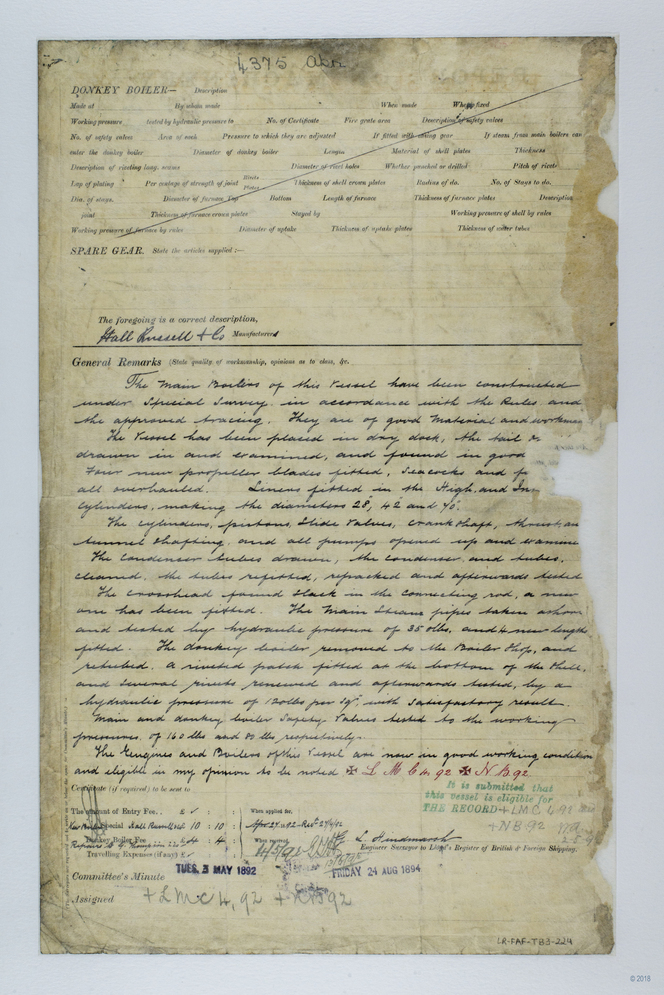 4375 Abn
DONKEY BOILER— Description
Made at By whom made When made Where fixed
Working pressure tested by hydraulic pressure to No. of Certificate Fire grate area Description of safety valves
No. of safety valves Area of each Pressure to which they are adjusted If fitted with easing gear If steam from main boilers can
enter the donkey boiler Diameter of donkey boiler Length Material of shell plates Thickness
Description of riveting long. seams Diameter of rivet holes Whether punched or drilled Pitch of rivets
Lap of plating Per centage of strength of joint Rivets Plates Thickness of shell crown plates Radius of do. No. of Stays to do.
Dia. of stays. Diameter of furnace Top Bottom Length of furnace Thickness of furnace plates Description
joint Thickness of furnace crown plates Stayed by Working pressure of shell by rules
Working pressure of furnace by rules Diameter of uptake Thickness of uptake plates Thickness of water tubes
SPARE GEAR. State the articles supplied :—
The foregoing is a correct description,
Hall Russell & Co Manufacturer
General Remarks (State quality of workmanship, opinions as to class, &c.
The Main Boilers of this Vessel have been constructed
under Special Survey in accordance with the Rules and
the approved tracing. They are of good Material and workman
The Vessel has been placed in dry dock, the tail
drawn in and examined, and found in good
Four new propeller blades fitted, Seacocks and
all overhauled. Liners fitted in the High and
Cylinders, making the diameters 28, 42 and 70.
The cylinders, pistons, Slide Valves, Crank Shaft, thrust an
tunnel shafting, and all pumps opened up and examine
The Condenser tubes drawn, the condenser and tubes,
cleaned, the tubes refitted, repacked and afterwards tested
The Crosshead found slack in the connecting rod, a new
one has been fitted. The Main Steam pipes taken ashore
and tested by hydraulic pressure of 350lbs, and 4 new lengths
fitted. The donkey boiler removed to the Boiler Shop, and
retubed. A riveted patch fitted at the bottom of the Shell,
and several rivets renewed and afterwards tested, by a
hydraulic pressure of 120lbs per sq", with Satisfactory result.
Main and donkey boiler Safety Valves tested to the working
pressures, of 160 lbs and 80 lbs respectively.
The Engines and Boilers of this Vessel are now in good working condition
and eligible in my opinion to be noted ✠ L M C 4, 92 ✠ N B 92
Certificate (if required) to be sent to
It is submitted that
this vessel is eligible for
THE RECORD + LMC 4.92
+ NB. 92
The amount of Entry Fee.. £ When applied for,
Special 10 : 10 :
Donkey Boiler Fee When received,
Travelling Expenses (if any) £
L. Hindmarsh
Engineer Surveyor to Lloyd's Register of British & Foreign Shipping.
Committee's Minute TUES. 3 MAY 1892 FRIDAY 24 AUG 1894
Assigned + L M C 4, 92 + NB 92
LR-FAF-TB3-224
© 2018